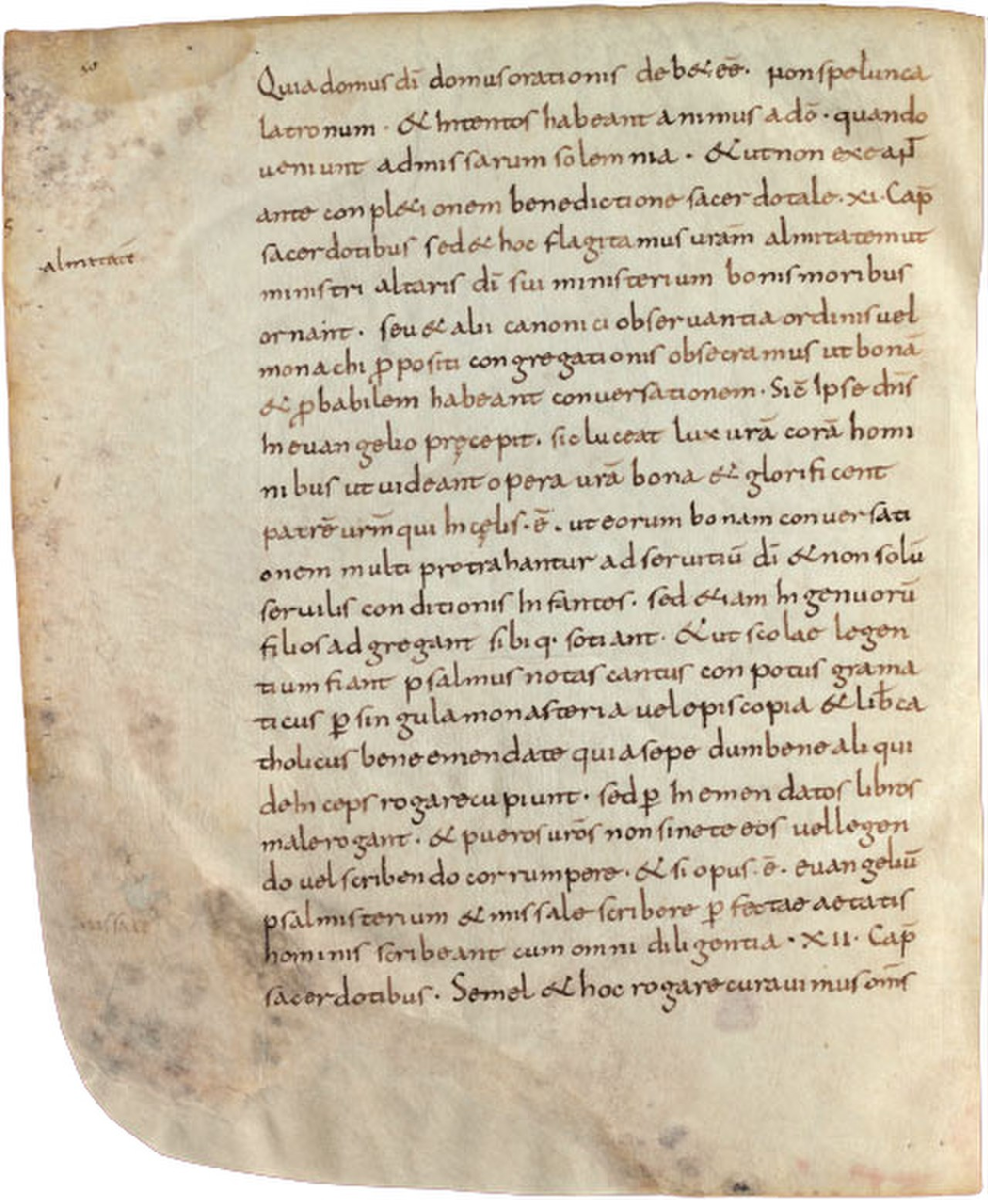 Quia domus dī domus orationis deb& eē. non spelunca
latronum · & Intentos habeant animus adō · quando
ueniunt admissarum solemnia · & ut non exeaṉt
ante conpl&ionem benedictione sacerdotale · xi · Cap̄
almitatē
sacerdotibus sed & hoc flagitamus uram̄ almitatem ut
ministri altaris dī sui ministerium bonis moribus
ornaint. seu & alii canonici observantia ordinis vel
monachi p̄positi congregationis obsecramus ut bonā
& p̄babilem habeant conversationem · Sic̄ Ipse dn̄s
In euangelio pręcepit. sic luceat lux urā corā homi
nibus ut uideant opera urā bona & glorificent
patrē urm̄ qui In cęlis · ē. ut eorum bonam conversati
onem multi protrahantur ad servitiū dī & non solū
servilis conditionis Infantes. sed &iam Ingenuorū
filios adgregant sibiq· sotiant. & ut scolae legen
tium fiant psalmus notas cantus conpotus grama
ticus ꝑ singula monasteria vel episcopia & lib̄ ca
tholicus bene emendate quia sepe dum bene aliqui
deInceps rogare cupiunt. sed ꝑ Inemendatos libros
male rogant. & pueros urōs non sinete eos vel legen
do vel scribendo corrumpere · & si opus · ē. euangeliū
psalmisterium & missale scribere ꝑfectae aetatis
hominis scribeant cum omni diligentia · XII · Cap̄
sacerdotibus. Semel & hoc rogare curauimus om̄s